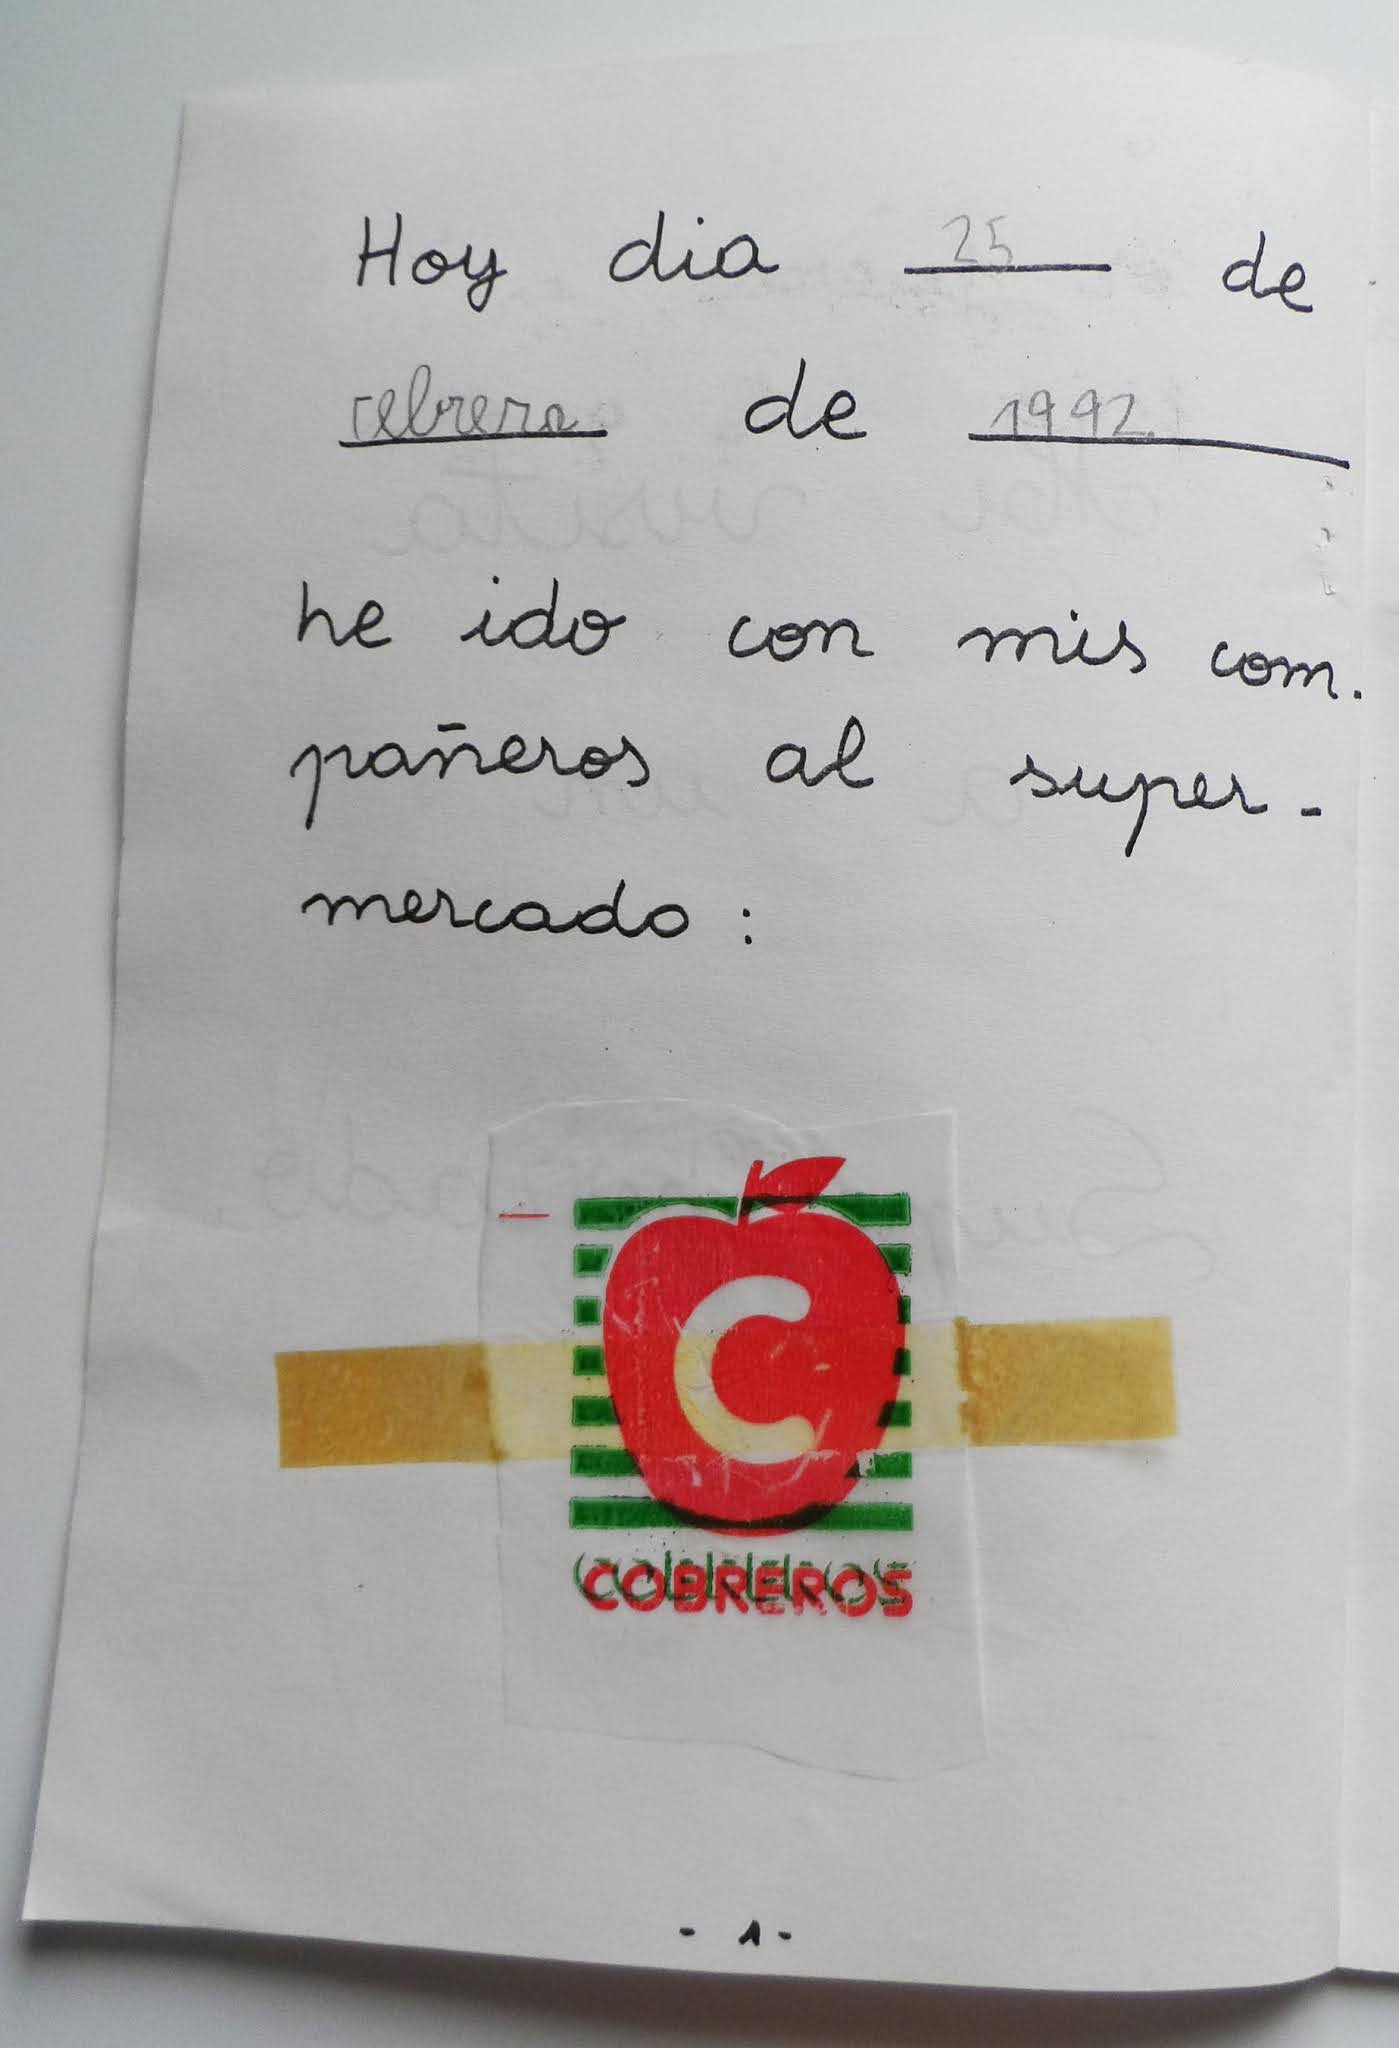 Hoy dia 25 de
febrero de 1992.
he ido con mis com.
pañeros al super-
mercado:
C
COBREROS
- 1 -